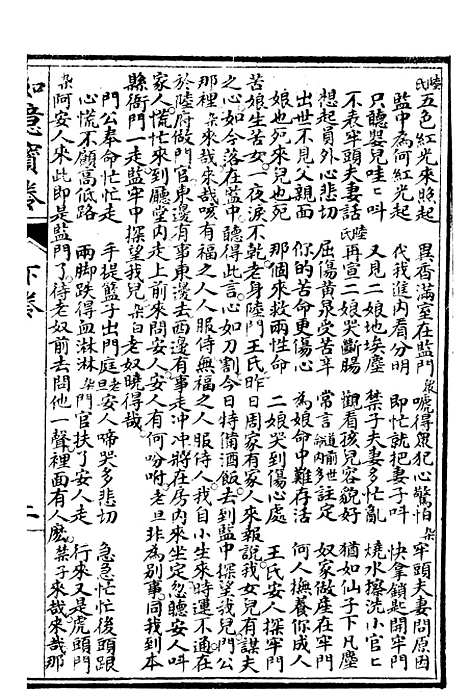 陸氏五色紅光來照起　異香滿室在監門衆唬得眾犯心驚怕杂牢頭夫妻問原因
監中為何紅光起　代我進內看分明　即忙就把妻子呌　快拿鎖匙開牢門
只聽嬰兒哇〻呌　又見二娘地埃塵　禁子夫妻多忙亂　燒水擦洗小官〻
不表牢頭夫妻話陸氏再宣二娘哭斷腸　觀看孩兒容貌好　猶如仙子下凡塵
想起員外心悲切　屈傷黃泉受苦辛　常言道前世註定獄內多　奴家做產在牢門
出世不見父親面　你的苦命更傷心　為娘命中難存活　何人撫養你成人
娘也死來兒也死　那個來救兩性命　二娘哭到傷心處　王氏安人探牢門
苦娘生苦女一夜淚不乾老身陸門王氏昨日周家有家人來報說我女兒有謀夫
之心如今落在監中聽得此言心如刀割今日特備酒飯去到監中探望我兒門公
那裡杂來哉哉嗳有福之人人服侍無福之人服侍人我自小生來時運不通在
於陸府做門官東邊有事東邊去西邊有事走冲冲將在房內來坐定忽聽安人呌
家人慌忙來到廳堂內走上前來問安人安人有何吩咐老旦非為別事同我到本
縣衙門一走監牢中探望我兒杂白老奴曉得哉
門公奉命忙忙走　手提籃子出門庭老旦安人啼哭多悲切　急急忙忙後頭跟
心慌不願高低路　兩脚跌得血淋淋杂門官扶了安人走　行來又是虎頭門
杂阿安人來此即是監門了待老奴前去問他一聲裡面有人麽禁子來哉來哉那
如意寶卷
下卷
二